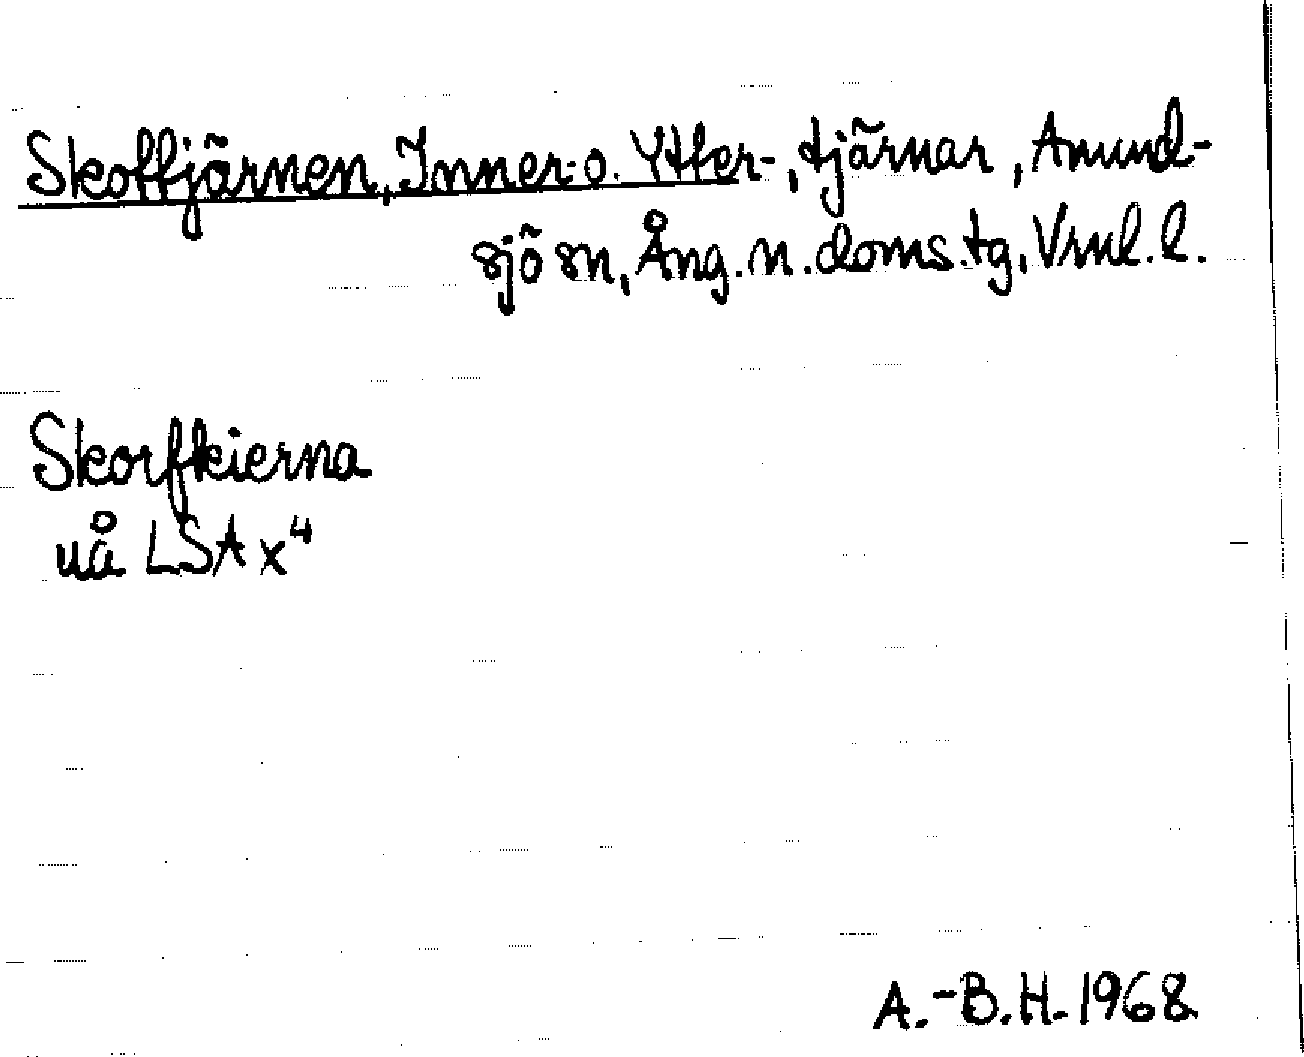 Skottjärnen, Inner- o. Ytter-, tjärnar, Amund-
sjö sn, Ång. n. doms. tg, Vrnl. l.
Skorftkierna
uå LSA x⁴
A.-B.H. 1968